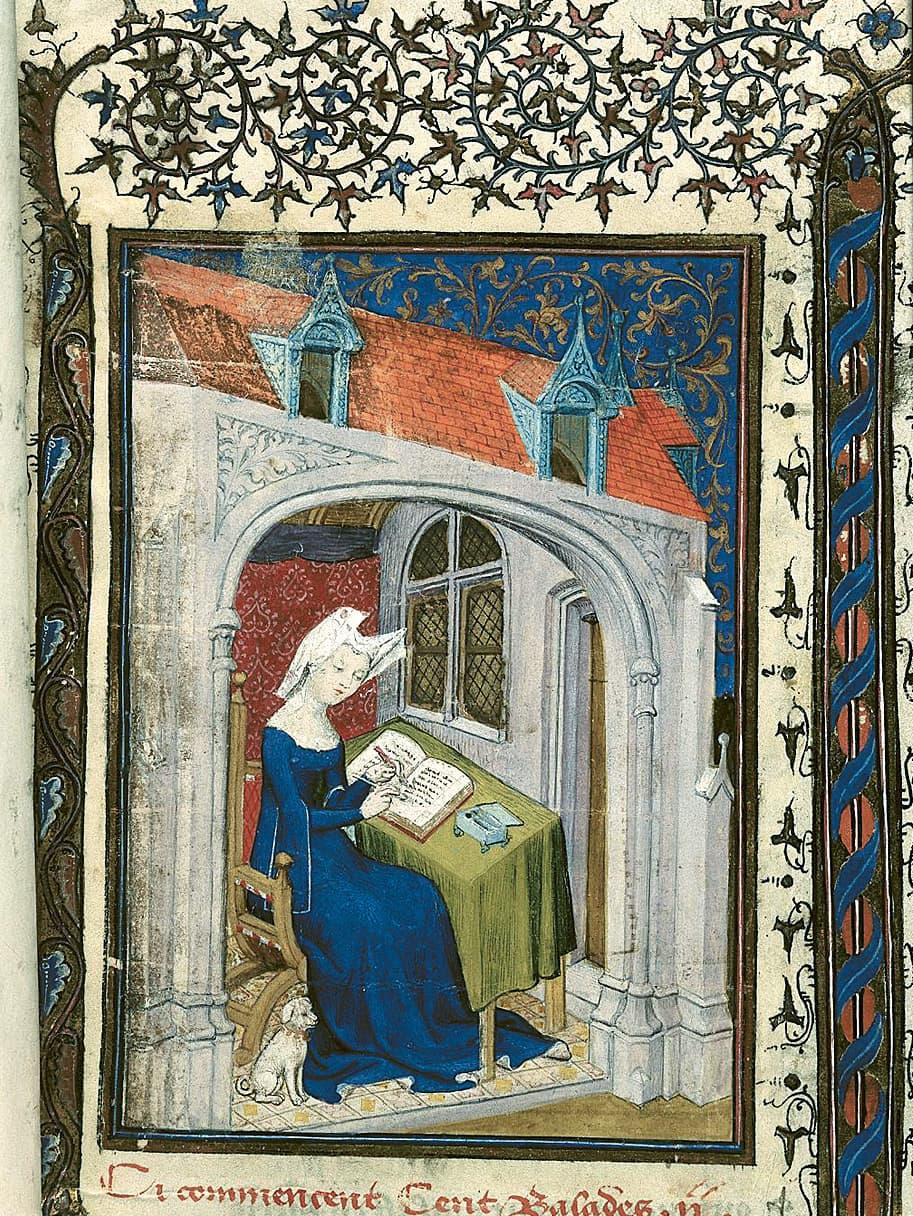 Ci commencent Cent Balades